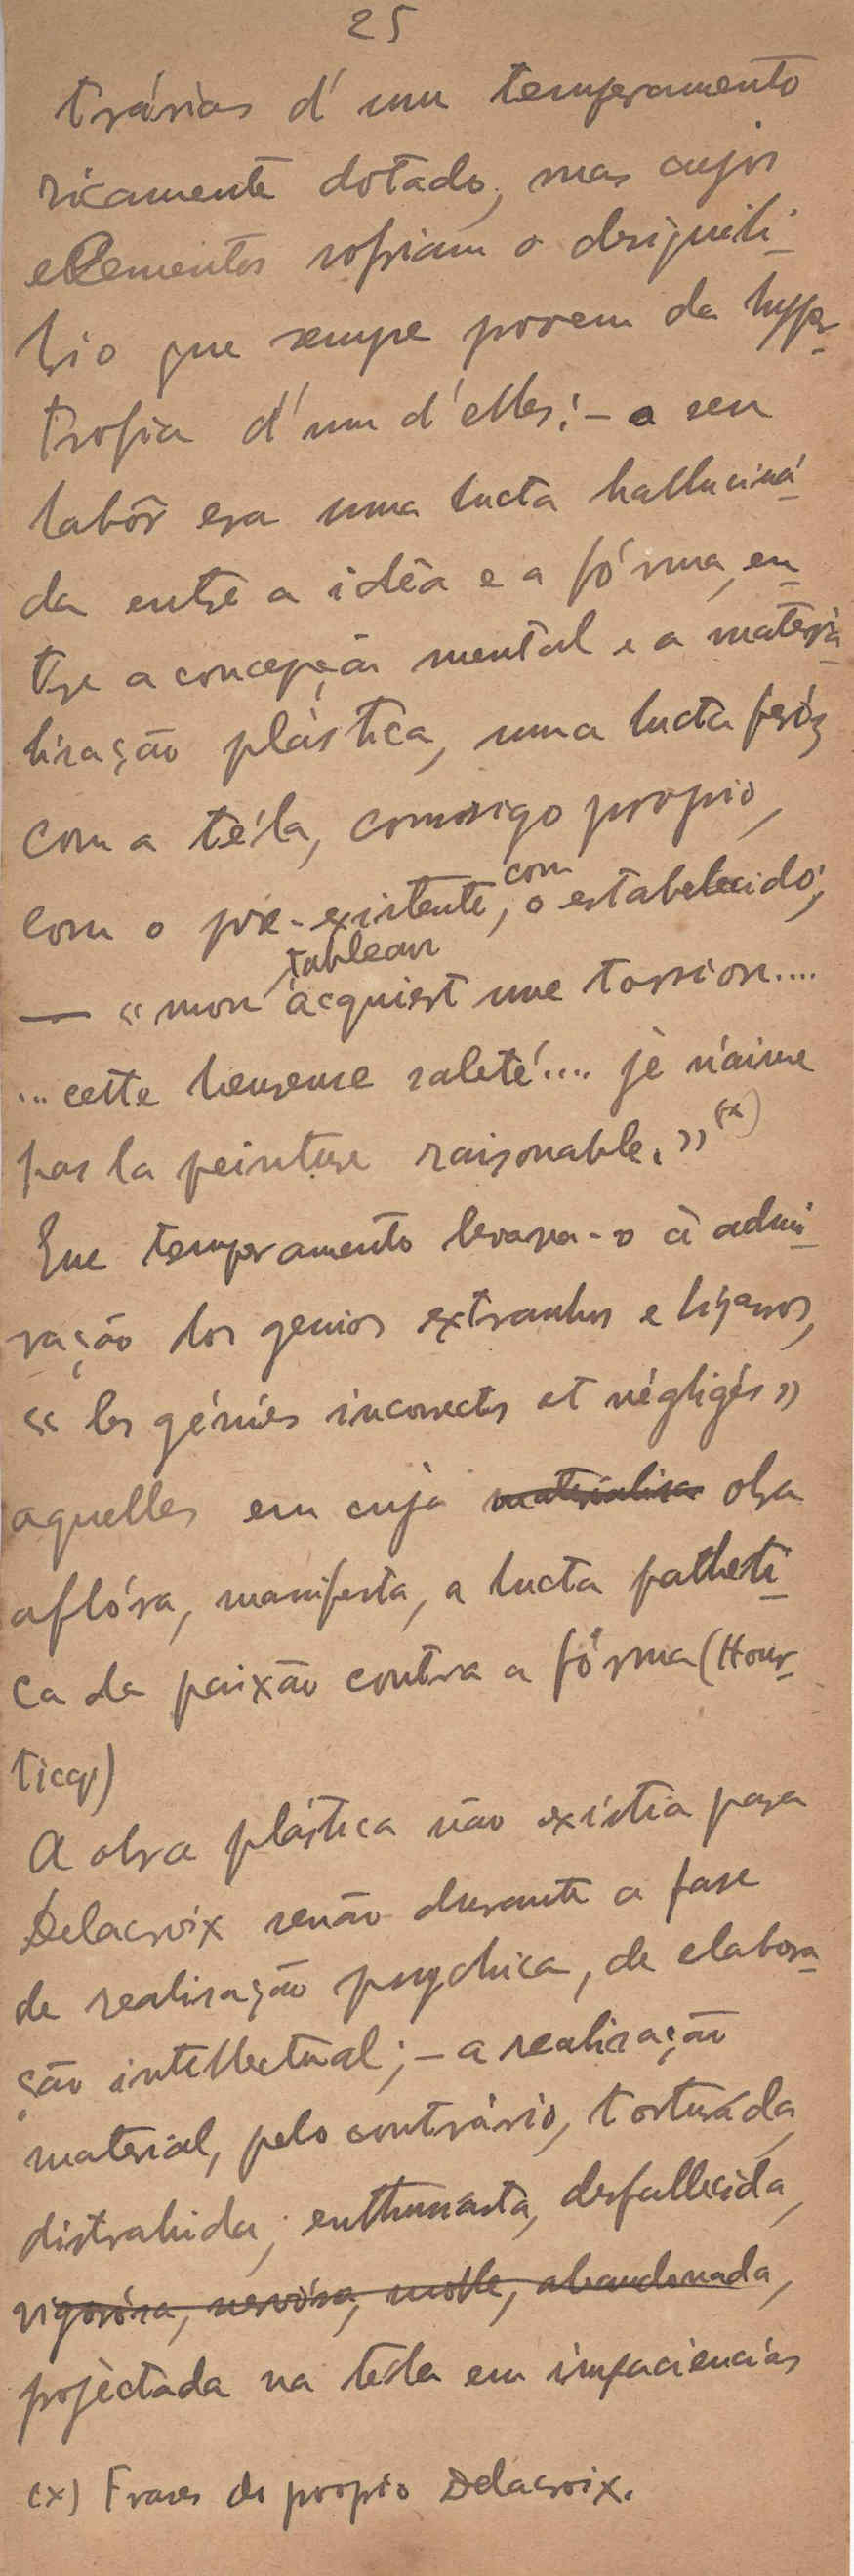 25
trárias d'um temperamento
ricamente dotado, mas cujos
elementos sofriam o desiquili-
brio que sempre provem da hyper-
trofia d'um d'elles: — o seu
labôr era uma lucta halluciná-
da entre a idêa e a fórma, en-
tre a concepção mental e a materia-
lisação plástica, uma lucta feróz
com a téla, comsigo proprio,
com o pre-existente, com o estabelecido;
— « mon tableau acquiert une torsion....
... cette heureuse saleté.... je n'aime
pas la peinture raisonable. » (x)
Que temperamento levava-o à admi-
ração dos genios extranhos e bizarros,
« les génies incorrects et négligés »
aquelles em cuja materialisa obra
aflóra, manifesta, a lucta patheti-
ca da paixão contra a fórma (Hour-
ticq)
A obra plástica não existia para
Delacroix senão durante a fase
de realisação psychica, de elabora-
ção intellectual; — a realisação
material, pelo contrário, torturáda,
distrahida, enthusiasta, desfallecida,
vigorósa, nervósa, mólle, abandonada,
projéctada na tela em impaciencias
(x) Frases do proprio Delacroix.